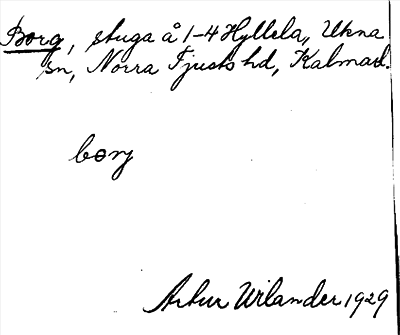 Borg, stuga å 1-4 Hyllela, Ukna
sn, Norra Tjusts hd, Kalmar l.
borj
Artur Wilander 1929